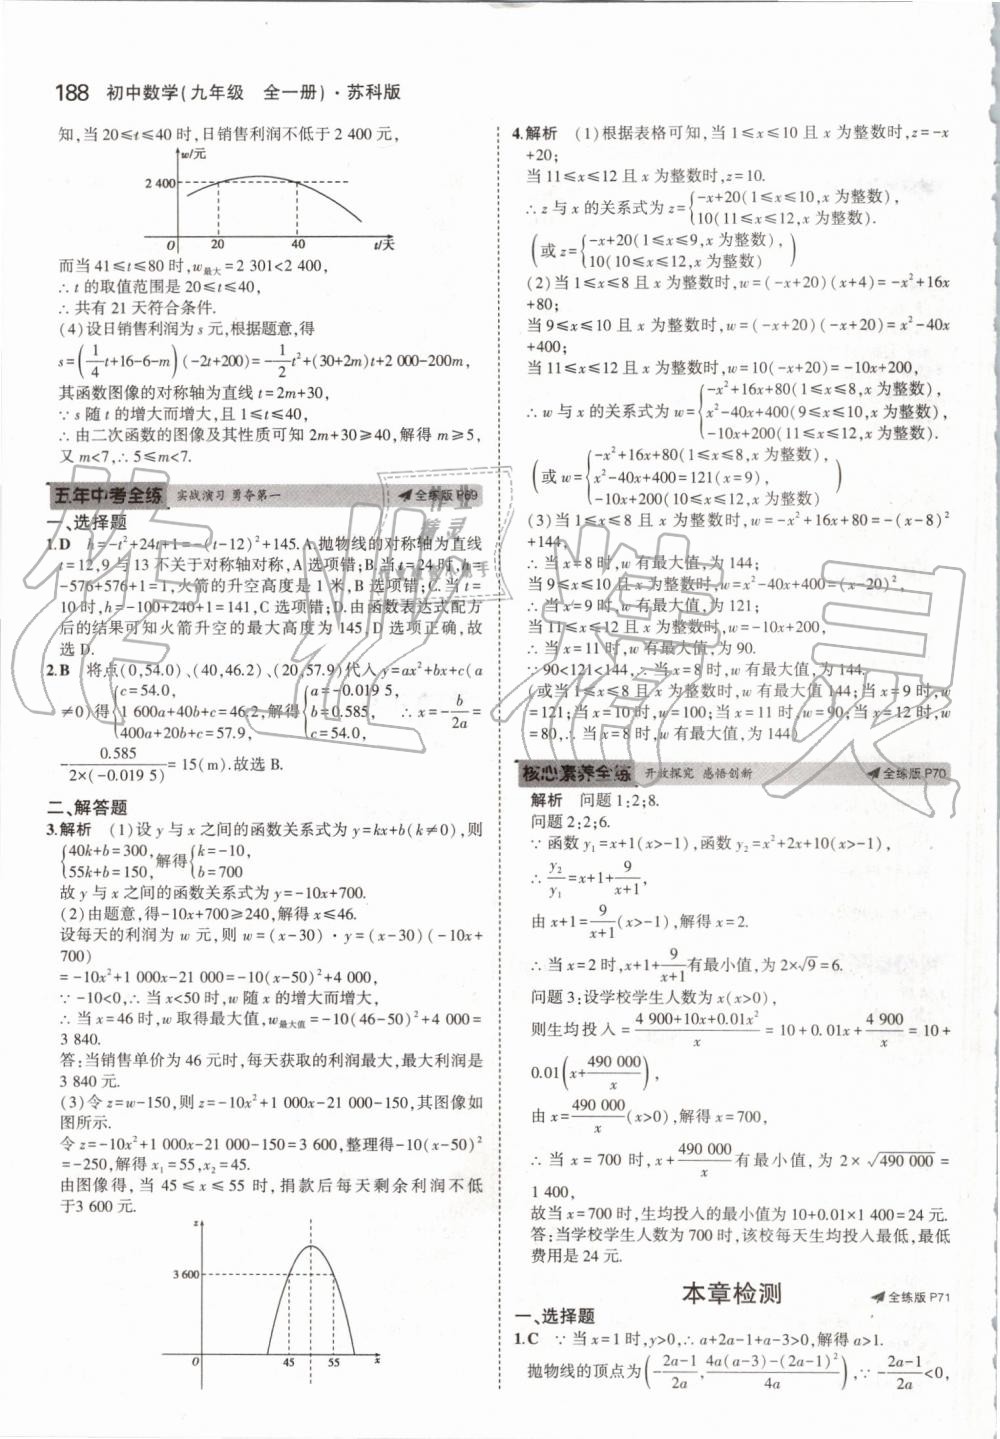 188 初中数学(九年级 全一册)·苏科版
知,当 20≤t≤40 时,日销售利润不低于 2 400 元,
w/元
2 400
O 20 40 t/天
而当 41≤t≤80 时,w最大=2 301<2 400,
∴ t 的取值范围是 20≤t≤40,
∴ 共有 21 天符合条件.
(4)设日销售利润为 s 元,根据题意,得
s=(1/4 t+16-6-m)(-2t+200)=-1/2 t²+(30+2m)t+2 000-200m,
其函数图像的对称轴为直线 t=2m+30,
∵ s 随 t 的增大而增大,且 1≤t≤40,
∴ 由二次函数的图像及其性质可知 2m+30≥40,解得 m≥5,
又 m<7,∴ 5≤m<7.
五年中考全练 实战演习 勇夺第一 全练版 P69
一、选择题
1.D h=-t²+24t+1=-(t-12)²+145.A.抛物线的对称轴为直线
t=12,9 与 13 不关于对称轴对称,A 选项错;B.当 t=24 时,h=
-576+576+1=1,火箭的升空高度是 1 米,B 选项错;C.当 t=
10时,h=-100+240+1=141,C 选项错;D.由函数表达式配方
后的结果可知火箭升空的最大高度为 145,D 选项正确,故
选 D.
2.B 将点(0,54.0)、(40,46.2)、(20,57.9)代入 y=ax²+bx+c(a
≠0)得{c=54.0, 1 600a+40b+c=46.2, 400a+20b+c=57.9, 解得{a=-0.019 5, b=0.585, c=54.0, ∴ x=-b/2a=
-0.585/2×(-0.019 5)=15(m).故选 B.
二、解答题
3.解析 (1)设 y 与 x 之间的函数关系式为 y=kx+b(k≠0),则
{40k+b=300, 55k+b=150, 解得{k=-10, b=700
故 y 与 x 之间的函数关系式为 y=-10x+700.
(2)由题意,得-10x+700≥240,解得 x≤46.
设每天的利润为 w 元,则 w=(x-30)·y=(x-30)(-10x+
700)
=-10x²+1 000x-21 000=-10(x-50)²+4 000,
∵ -10<0,∴ 当 x<50 时,w 随 x 的增大而增大,
∴ 当 x=46 时,w 取得最大值,w最大值=-10(46-50)²+4 000=
3 840.
答:当销售单价为 46 元时,每天获取的利润最大,最大利润是
3 840 元.
(3)令 z=w-150,则 z=-10x²+1 000x-21 000-150,其图像如
图所示.
令 z=-10x²+1 000x-21 000-150=3 600,整理得-10(x-50)²
=-250,解得 x₁=55,x₂=45.
由图像得,当 45≤x≤55 时,捐款后每天剩余利润不低
于3 600 元.
z
3 600
O 45 55 x
4.解析 (1)根据表格可知,当 1≤x≤10 且 x 为整数时,z=-x
+20;
当 11≤x≤12 且 x 为整数时,z=10.
∴ z 与 x 的关系式为 z={-x+20(1≤x≤10,x 为整数), 10(11≤x≤12,x 为整数).
(或 z={-x+20(1≤x≤9,x 为整数), 10(10≤x≤12,x 为整数))
(2)当 1≤x≤8 且 x 为整数时,w=(-x+20)(x+4)=-x²+16x
+80;
当 9≤x≤10 且 x 为整数时,w=(-x+20)(-x+20)=x²-40x
+400;
当 11≤x≤12 且 x 为整数时,w=10(-x+20)=-10x+200,
∴ w 与 x 的关系式为 w={-x²+16x+80(1≤x≤8,x 为整数), x²-40x+400(9≤x≤10,x 为整数), -10x+200(11≤x≤12,x 为整数).
(或 w={-x²+16x+80(1≤x≤8,x 为整数), x²-40x+400=121(x=9), -10x+200(10≤x≤12,x 为整数))
(3)当 1≤x≤8 且 x 为整数时,w=-x²+16x+80=-(x-8)²
+144,
∴ 当 x=8 时,w 有最大值,为 144;
当 9≤x≤10 且 x 为整数时,w=x²-40x+400=(x-20)²,
∴ 当 x=9 时,w 有最大值,为 121;
当 11≤x≤12 且 x 为整数时,w=-10x+200,
∴ 当 x=11 时,w 有最大值,为 90.
∵ 90<121<144,∴ 当 x=8 时,w 有最大值,为 144.
(或当 1≤x≤8 且 x 为整数时,w 有最大值 144;当 x=9 时,w
=121;当 x=10 时,w=100;当 x=11 时,w=90;当 x=12 时,w
=80,∴ 当 x=8 时,w 有最大值,为 144)
核心素养全练 开放探究 感悟创新 全练版 P70
解析 问题 1:2;8.
问题 2:2;6.
∵ 函数 y₁=x+1(x>-1),函数 y₂=x²+2x+10(x>-1),
∴ y₂/y₁=x+1+9/(x+1),
由 x+1=9/(x+1)(x>-1),解得 x=2.
∴ 当 x=2 时,x+1+9/(x+1)有最小值,为 2×√9=6.
问题 3:设学校学生人数为 x(x>0),
则生均投入=(4 900+10x+0.01x²)/x=10+0.01x+4 900/x=10+
0.01(x+490 000/x),
由 x=490 000/x(x>0),解得 x=700,
∴ 当 x=700 时,x+490 000/x有最小值,为 2×√490 000=
1 400,
故当 x=700 时,生均投入的最小值为 10+0.01×1 400=24 元.
答:当学校学生人数为 700 时,该校每天生均投入最低,最低
费用是 24 元.
本章检测 全练版 P71
一、选择题
1.C ∵ 当 x=1 时,y>0,∴ a+2a-1+a-3>0,解得 a>1.
抛物线的顶点为(-(2a-1)/2a, (4a(a-3)-(2a-1)²)/4a),∵ -(2a-1)/2a<0,
作业精灵